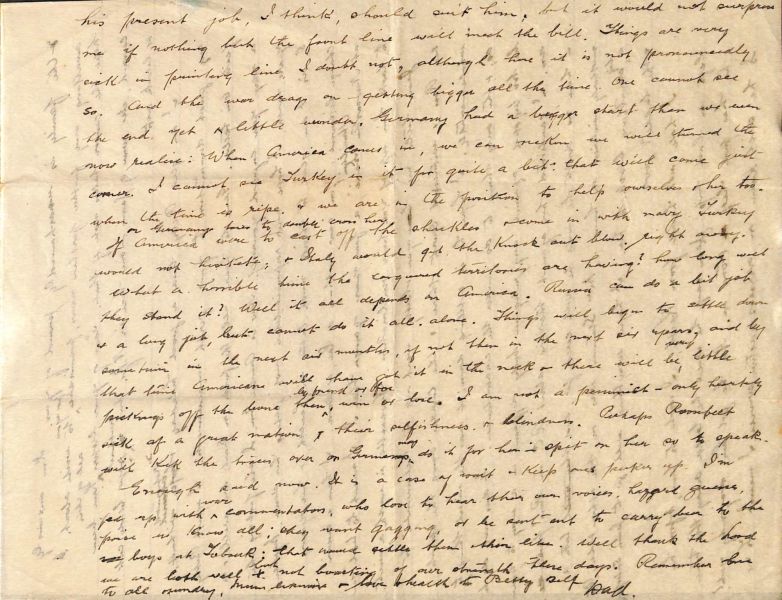 his present job, I think, should suit him, but it would not surprise
me if nothing but the front line will meet the bill. Things are very
sick in printing line, I doubt not, although here it is not pronouncedly
so. And the war drags on - getting bigger all the time. One cannot see
the end yet & little wonder. Germany had a bigger start than we even
now realise: When America comes in, we can reckon we will turned the
corner. I cannot see Turkey in it for quite a bit. That will come just
when the time is ripe. & we are in the position to help ourselves & her too.
or Germany tries to double cross her
If America were to cast off the shackles & come in with navy Turkey
would not hesitate; & Italy would get the knock out blow right away.
What a horrible time the conquered territories are having? how long will
they stand it? Well it all depends on America. Russia can do a bit job
& a long job but cannot do it all, alone. Things will begin to settle down
sometime in the next six months, if not then in the next six years, and by
that time Americans will have got it in the neck & there will be very little
pickings off the bone then, by friend or foe win or lose. I am not a pessimist - only heartily
sick of a great nation & their selfishness & blindness. Perhaps Roosbelt
will kick the traces over or Germans may do it for him - spit on her so to speak.
Enough said now. It is a case of wait & keep one's pecker up. I'm
fed up with war commentators, who love to hear their own voices, hazard guesses,
pose as know all; they want gagging, or be sent out to carry beer to the
boys at Tobruk; that would settle their thin like. Well thank the Lord
we are both well & both not boasting of our strength these days. Remember love
to all sundry, & love & health to Betty self
Dad.